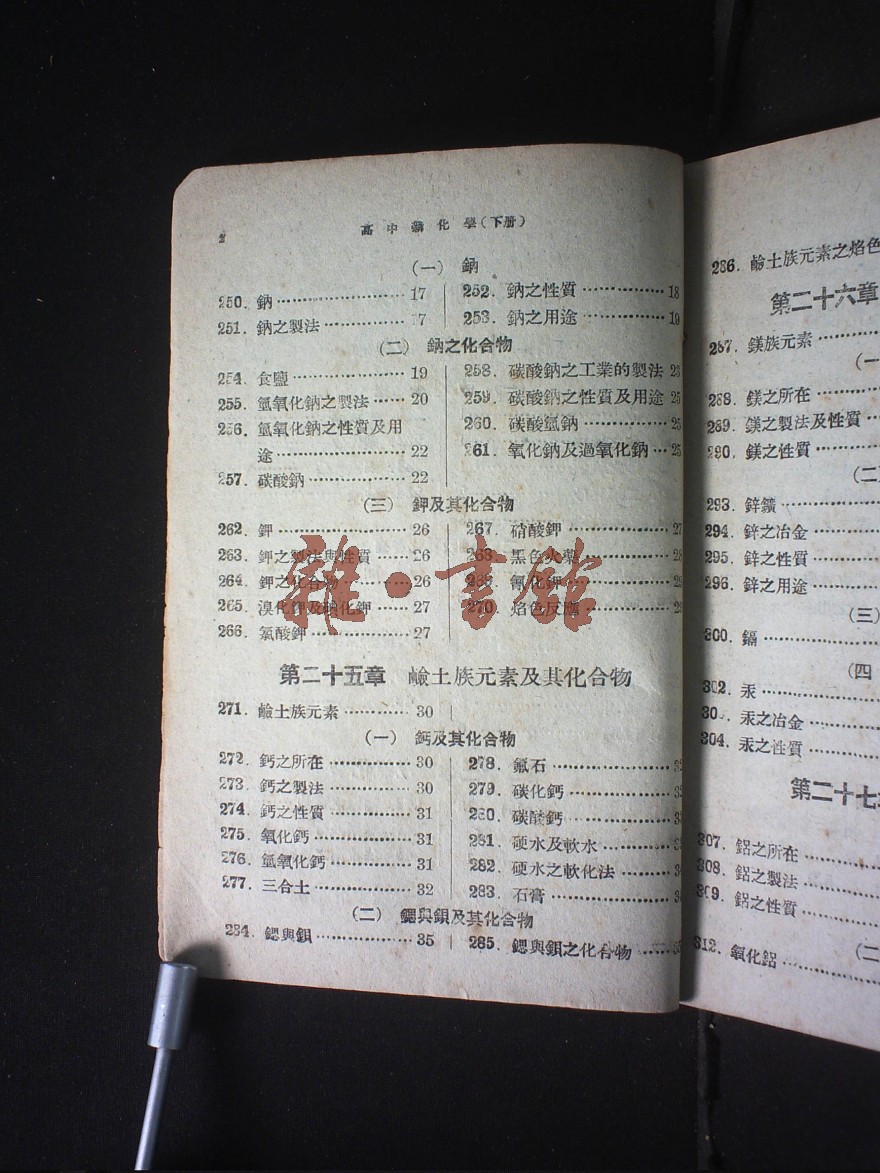 2
高中新化學(下册)
(一) 鈉
250. 鈉 17
251. 鈉之製法 17
252. 鈉之性質 18
253. 鈉之用途 19
(二) 鈉之化合物
254. 食鹽 19
255. 氫氧化鈉之製法 20
256. 氫氧化鈉之性質及用
途 22
257. 碳酸鈉 22
258. 碳酸鈉之工業的製法 23
259. 碳酸鈉之性質及用途 25
260. 碳酸氫鈉 25
261. 氧化鈉及過氧化鈉 25
(三) 鉀及其化合物
262. 鉀 26
263. 鉀之製法與性質 26
264. 鉀之化合物 26
265. 溴化鉀及碘化鉀 27
266. 氯酸鉀 27
267. 硝酸鉀 27
268. 黑色火藥 28
269. 氰化鉀
270. 焰色反應
雜·書館
第二十五章 鹼土族元素及其化合物
271. 鹼土族元素 30
(一) 鈣及其化合物
272. 鈣之所在 30
273. 鈣之製法 30
274. 鈣之性質 31
275. 氧化鈣 31
276. 氫氧化鈣 31
277. 三合土 32
278. 氟石
279. 碳化鈣
280. 碳酸鈣
281. 硬水及軟水
282. 硬水之軟化法
283. 石膏
(二) 鍶與鋇及其化合物
284. 鍶與鋇 35
285. 鍶與鋇之化合物
286. 鹼土族元素之焰色
第二十六章
287. 鎂族元素
(一
288. 鎂之所在
289. 鎂之製法及性質
290. 鎂之性質
(二
293. 鋅鑛
294. 鋅之冶金
295. 鋅之性質
296. 鋅之用途
(三)
300. 鎘
(四
302. 汞
303. 汞之冶金
304. 汞之性質
第二十七
307. 鋁之所在
308. 鋁之製法
309. 鋁之性質
(二
312. 氧化鋁